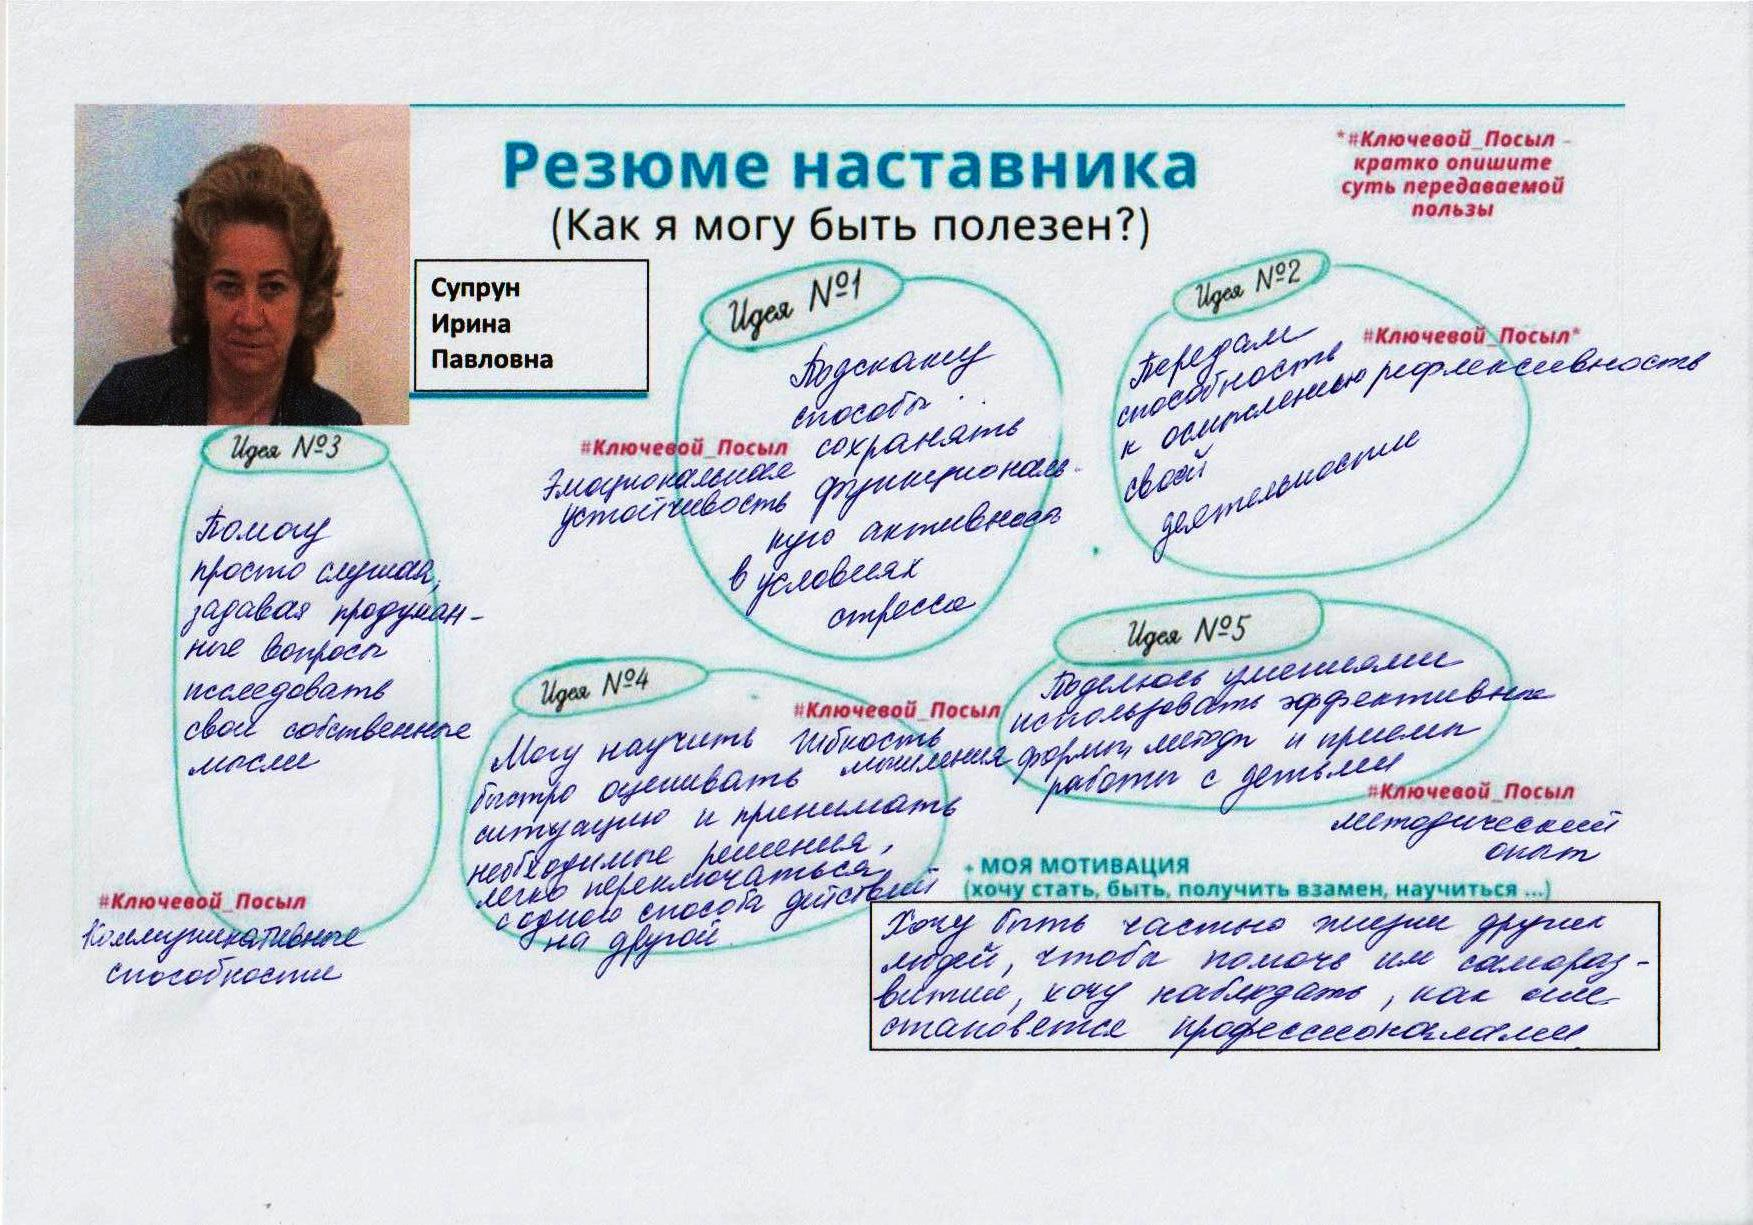 Резюме наставника
(Как я могу быть полезен?)
*#Ключевой_Посыл –
кратко опишите
суть передаваемой
пользы
Супрун
Ирина
Павловна
Идея №1
Подскажу
способы
сохранять
функциональ-
ную активность
в условиях
стресса
#Ключевой_Посыл
Эмоциональная
устойчивость
Идея №2
Передам
способность
к осмыслению
своей
деятельности
#Ключевой_Посыл*
рефлексивность
Идея №3
Помогу
просто слушая,
задавая продуман-
ные вопросы
исследовать
свои собственные
мысли
#Ключевой_Посыл
Коммуникативные
способности
Идея №4
Могу научить
быстро оценивать
ситуацию и принимать
необходимые решения,
легко переключаться
с одного способа действий
на другой
#Ключевой_Посыл
Гибкость
мышления
Идея №5
Поделюсь умениями
использовать эффективные
формы, методы и приемы
работы с детьми
#Ключевой_Посыл
методический
опыт
+ МОЯ МОТИВАЦИЯ
(хочу стать, быть, получить взамен, научиться ...)
Хочу быть частью жизни других
людей, чтобы помочь им самораз-
витии, хочу наблюдать, как они
становятся профессионалами.